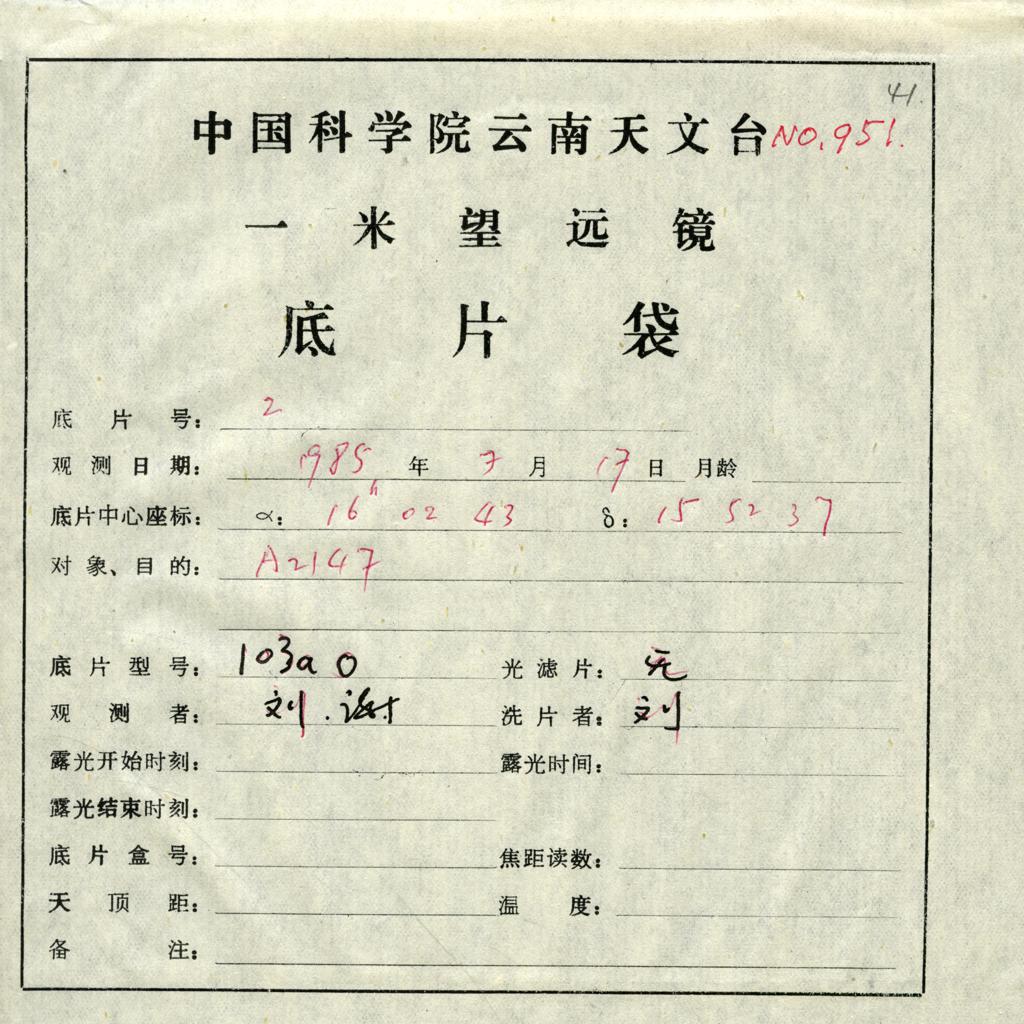 41.
中国科学院云南天文台 NO.951.
一米望远镜
底片袋
底片号: 2
观测日期: 1985年7月17日 月龄
底片中心座标: α: 16h 02 43 δ: 15 52 37
对象、目的: A2147
底片型号: 103a O 光滤片: 无
观测者: 刘.谢 洗片者: 刘
露光开始时刻: 露光时间:
露光结束时刻:
底片盒号: 焦距读数:
天顶距: 温度:
备注: